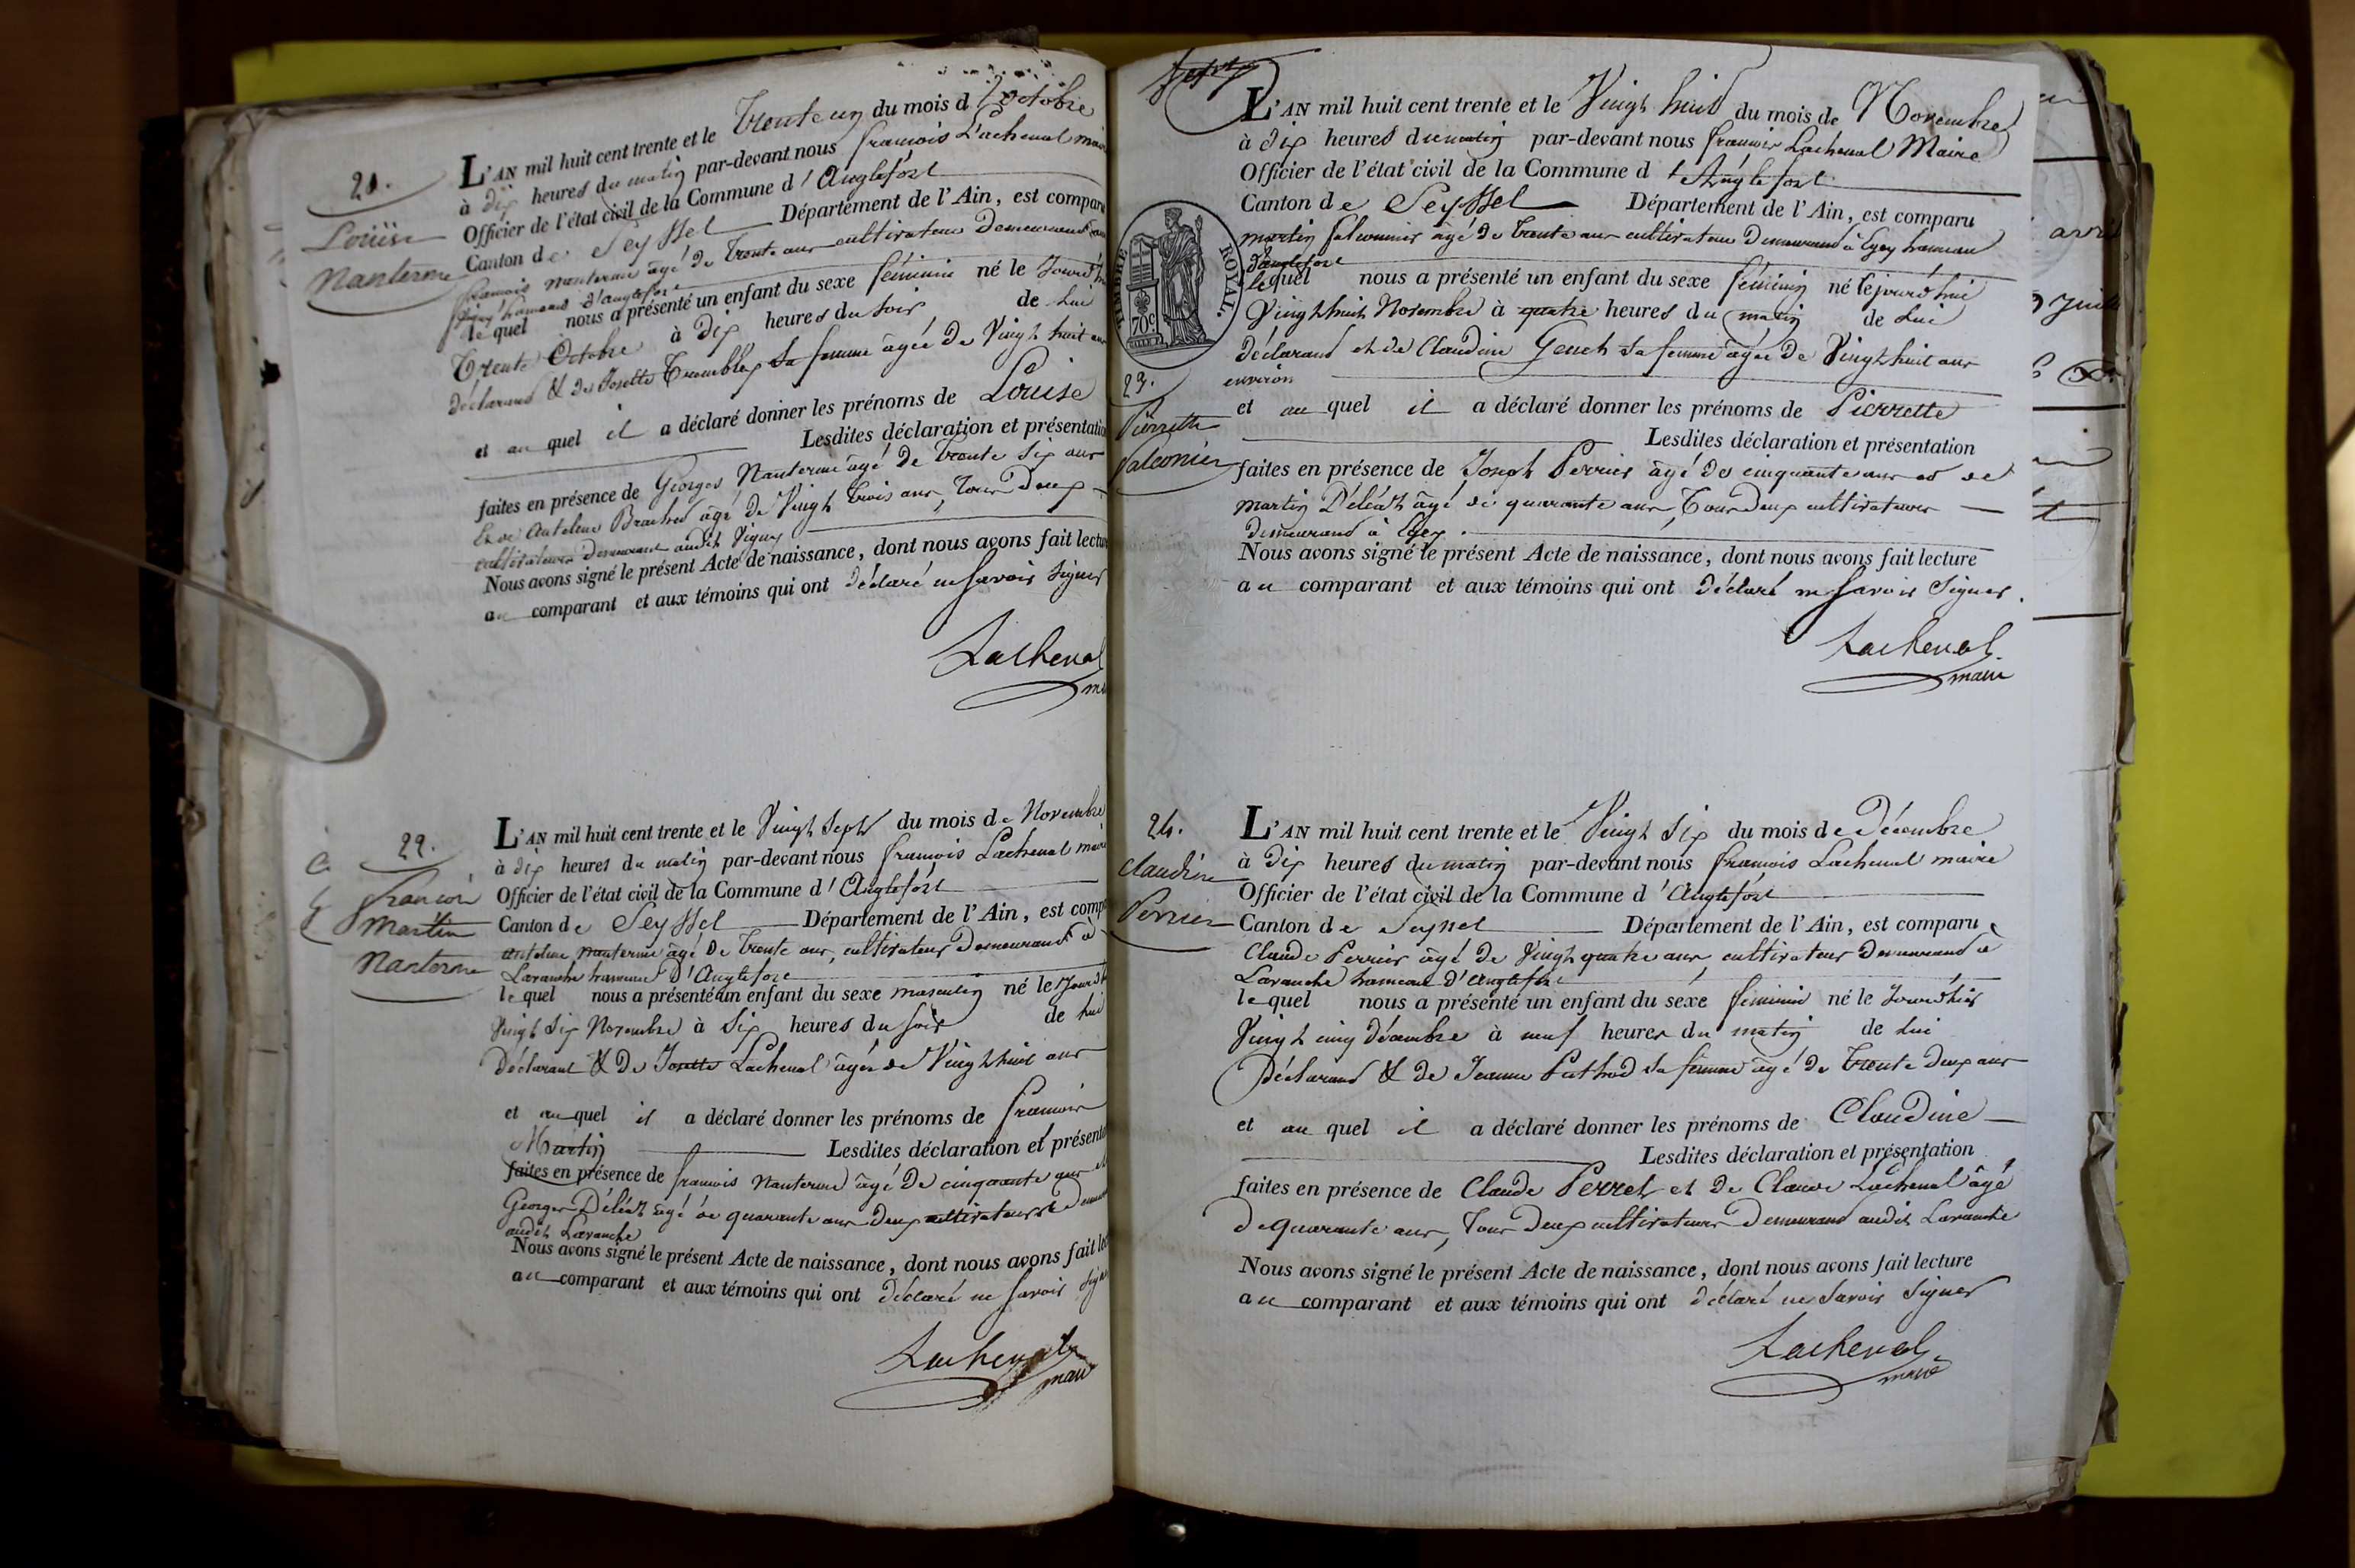 21.
Louise
Nanterme
L'AN mil huit cent trente et le trente un du mois d'octobre
à dix heures du matin par-devant nous françois Lachenal mai
Officier de l'état civil de la Commune d'Anglefort
Canton de Seyssel Département de l'Ain, est comparu
françois nanterme âgé de trente ans cultivateur demeurant
hameau d'anglefort
lequel nous a présenté un enfant du sexe féminin né le
trente Octobre à dix heures du soir de lui
déclarant & de Josette Tremblay sa femme âgée de Vingt huit ans
et au quel il a déclaré donner les prénoms de Louise
Lesdites déclaration et présentation
faites en présence de Georges Nanterme âgé de trente six ans
& de antelme âgé de Vingt trois ans, tous deux
cultivateurs demeurant audit
Nous avons signé le présent Acte de naissance, dont nous avons fait lecture
au comparant et aux témoins qui ont déclaré ne savoir signer
Lachenal
22.
françois
Martin
Nanterme
L'AN mil huit cent trente et le Vingt Sept du mois de Novembre
à dix heures du matin par-devant nous françois Lachenal maire
Officier de l'état civil de la Commune d'Anglefort
Canton de Seyssel Département de l'Ain, est comp
antelme nanterme âgé de trente ans, cultivateur demeurant à
Lavanche hameau d'Anglefort
lequel nous a présenté un enfant du sexe masculin né le
Vingt six Novembre à six heures du soir de lui
Déclarant & de Josette Lachenal âgée de Vingt huit ans
et au quel il a déclaré donner les prénoms de françois
Martin Lesdites déclaration et présent
faites en présence de françois Nanterme âgé de cinquante ans et
Georges Déléaz âgé de quarante ans deux cultivateurs
audit Lavanche
Nous avons signé le présent Acte de naissance, dont nous avons fait lec
au comparant et aux témoins qui ont déclaré ne savoir
Lachenal
maire
L'AN mil huit cent trente et le Vingt huit du mois de Novembre
à dix heures du matin par-devant nous françois Lachenal Maire
Officier de l'état civil de la Commune d'Anglefort
Canton de Seyssel Département de l'Ain, est comparu
martin falconnier âgé de trente ans cultivateur demeurant à hameau
d'anglefort
lequel nous a présenté un enfant du sexe féminin né lejourd'hui
Vingt huit Novembre à quatre heures du matin de Lui
déclarant et de Claudine sa femme âgée de Vingt huit ans
environ
TIMBRE ROYAL.
70c
23.
Pierrette
falconier
et au quel il a déclaré donner les prénoms de Pierrette
Lesdites déclaration et présentation
faites en présence de Joseph Perrier âgé de cinquante ans et de
martin Déléaz âgé de quarante ans, tous deux cultivateurs
demeurant à
Nous avons signé le présent Acte de naissance, dont nous avons fait lecture
au comparant et aux témoins qui ont déclaré ne savoir signer.
Lachenal
maire
24.
Claudine
Perrier
L'AN mil huit cent trente et le Vingt six du mois de Décembre
à dix heures du matin par-devant nous françois Lachenal maire
Officier de l'état civil de la Commune d'Anglefort
Canton de Seyssel Département de l'Ain, est comparu
Claude Perrier âgé de Vingt quatre ans cultivateur demeurant à
Lavanche hameau d'Anglefort
lequel nous a présenté un enfant du sexe féminin né le Jourd'hier
Vingt cinq décembre à neuf heures du matin de lui
Déclarant & de Jeanne sa femme âgé de trente deux ans
et au quel il a déclaré donner les prénoms de Claudine
Lesdites déclaration et présentation
faites en présence de Claude Perret et de Claude Lachenal âgé
de quarante ans, tous deux cultivateurs demeurant audit Lavanche
Nous avons signé le présent Acte de naissance, dont nous avons fait lecture
au comparant et aux témoins qui ont déclaré ne savoir signer
Lachenal
maire